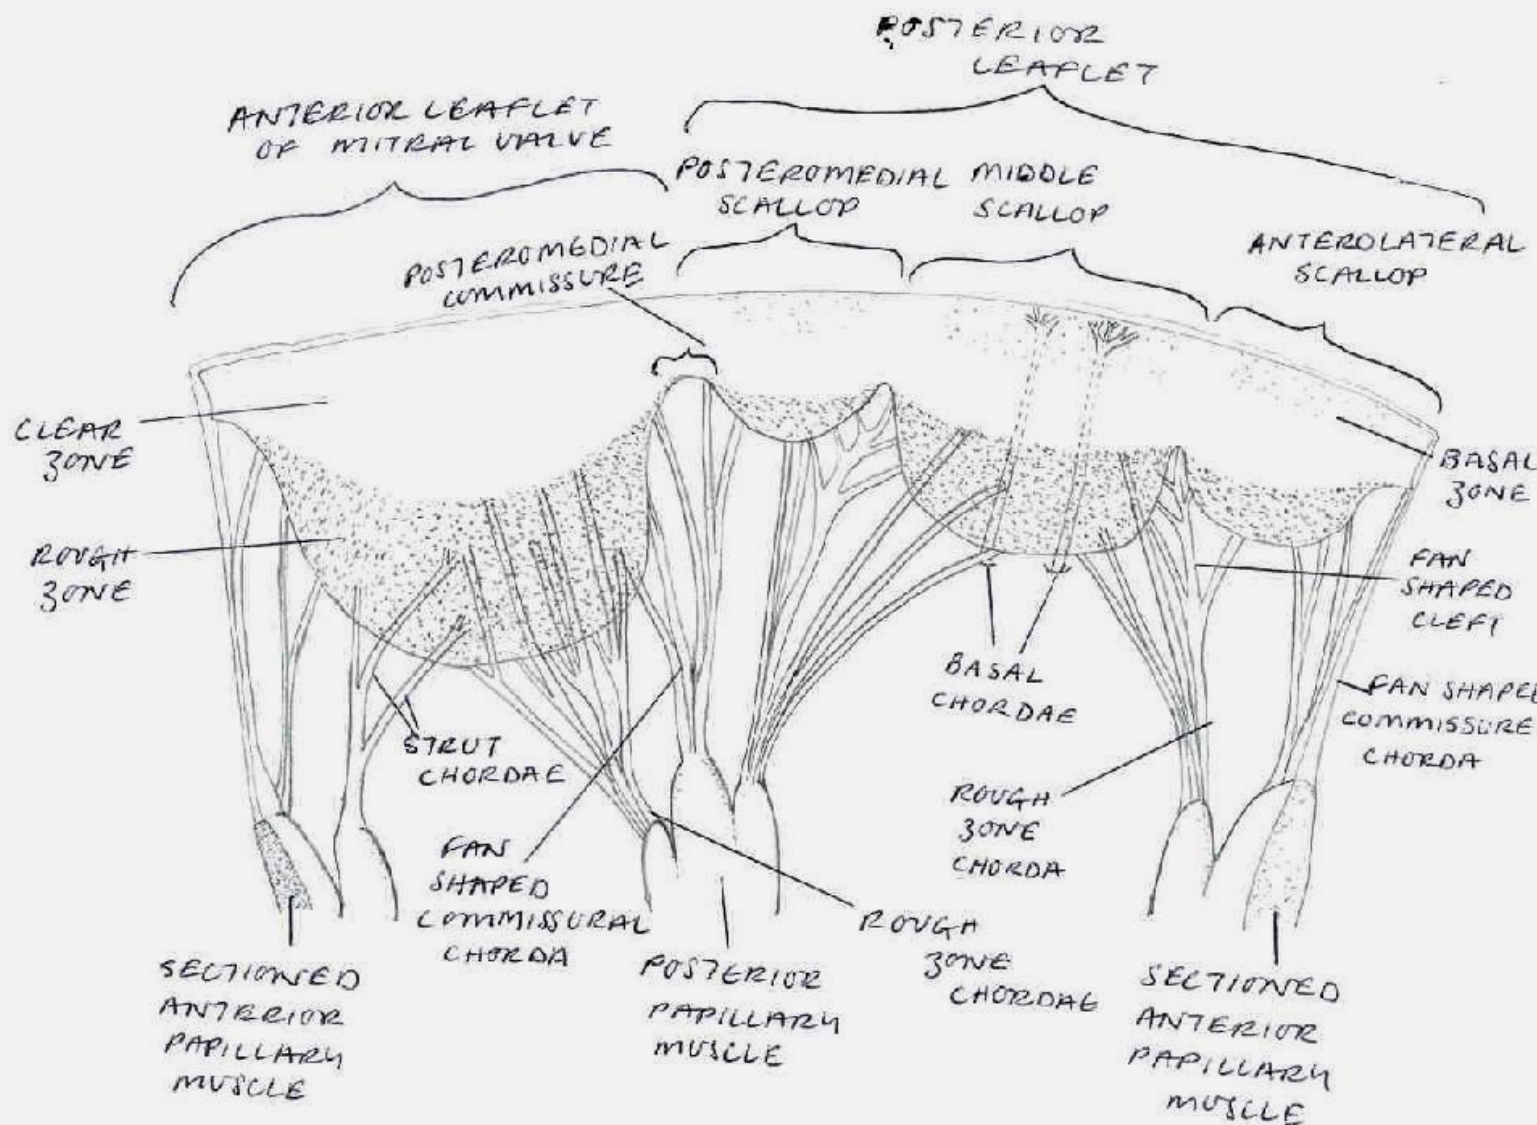 POSTERIOR
LEAFLET
ANTERIOR LEAFLET
OF MITRAL VALVE
POSTEROMEDIAL
SCALLOP
MIDDLE
SCALLOP
ANTEROLATERAL
SCALLOP
POSTEROMEDIAL
COMMISSURE
CLEAR
ZONE
BASAL
ZONE
ROUGH
ZONE
FAN
SHAPED
CLEFT
BASAL
CHORDAE
FAN SHAPED
COMMISSURE
CHORDA
STRUT
CHORDAE
ROUGH
ZONE
CHORDA
FAN
SHAPED
COMMISSURAL
CHORDA
ROUGH
ZONE
CHORDAE
SECTIONED
ANTERIOR
PAPILLARY
MUSCLE
POSTERIOR
PAPILLARY
MUSCLE
SECTIONED
ANTERIOR
PAPILLARY
MUSCLE